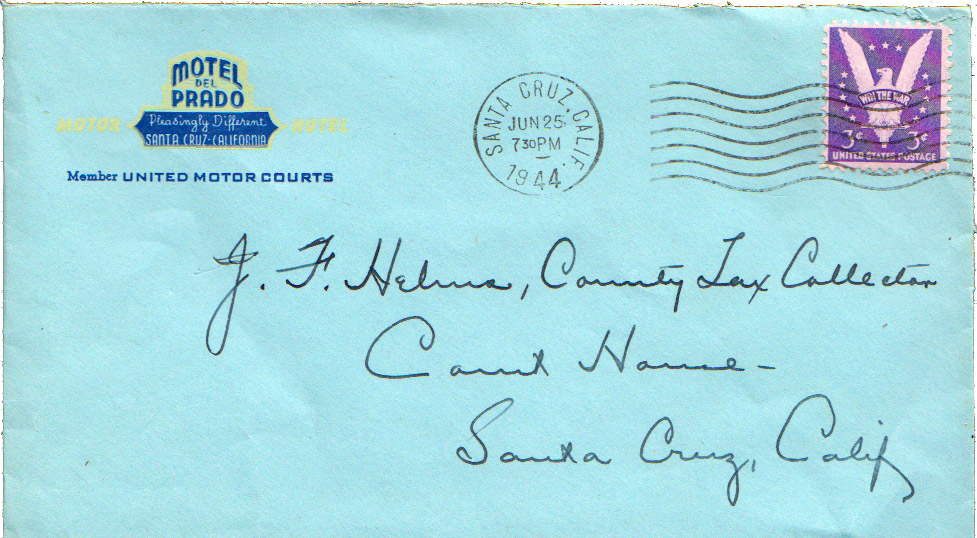 MOTEL
DEL
PRADO
MOTOR HOTEL
Pleasingly Different
SANTA CRUZ-CALIFORNIA
Member UNITED MOTOR COURTS
SANTA CRUZ, CALIF.
JUN 25
7 30 PM
1944
WIN THE WAR
3¢ 3¢
UNITED STATES POSTAGE
J. F. Helms, County Tax Collector
Court House-
Santa Cruz, Calif